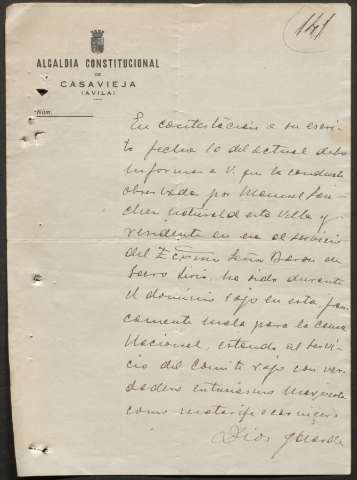 141
ALCALDIA CONSTITUCIONAL
DE
CASAVIEJA
(AVILA)
Núm.
En contestacion a su escri-
to fecha 10 del actual debo
informar a V. que la conducta
observada por Manuel San-
chez natural de esta Villa y
residente en esa al servicio
del Excmo Señor Baron de
Sacro Lirio, ha sido durante
el dominio rojo en esta fran-
camente mala para la causa
Nacional, estando al servi-
cio del Comite rojo con ver-
dadero entusiasmo
como matarife o carnicero
Dios guarde